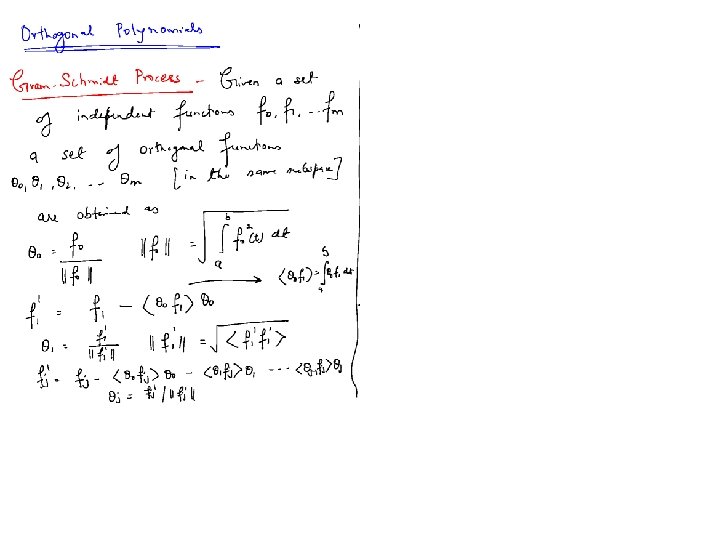 Orthogonal Polynomials
Gram-Schmidt Process - Given a set
of independent functions f₀, f₁, ... fₘ
a set of orthogonal functions
θ₀, θ₁, θ₂, ... θₘ [in the same subspace]
are obtained as
θ₀ = f₀ / ||f₀|| ||f₀|| = √(∫ₐᵇ f₀²(t) dt)
⟶ ⟨θ₀f₁⟩ = ∫ₐᵇ θ₀f₁ dt
f₁' = f₁ - ⟨θ₀f₁⟩ θ₀
θ₁ = f₁' / ||f₁'|| ||f₁'|| = √⟨f₁'f₁'⟩
fⱼ' = fⱼ - ⟨θ₀fⱼ⟩θ₀ - ⟨θ₁fⱼ⟩θ₁ ...
θⱼ = fⱼ' / ||fⱼ'||